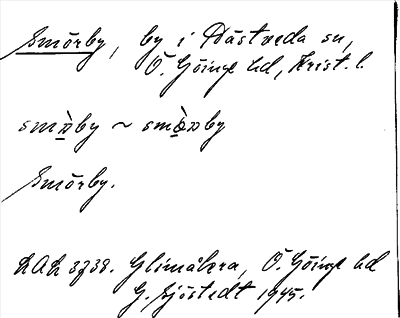 Smörby, by i Hästveda sn,
Ö. Göinge hd, Krist. l.
smby ~ smby
Smörby.
LAL 3738. Glimåkra, Ö. Göinge hd
G. Sjöstedt 1945.